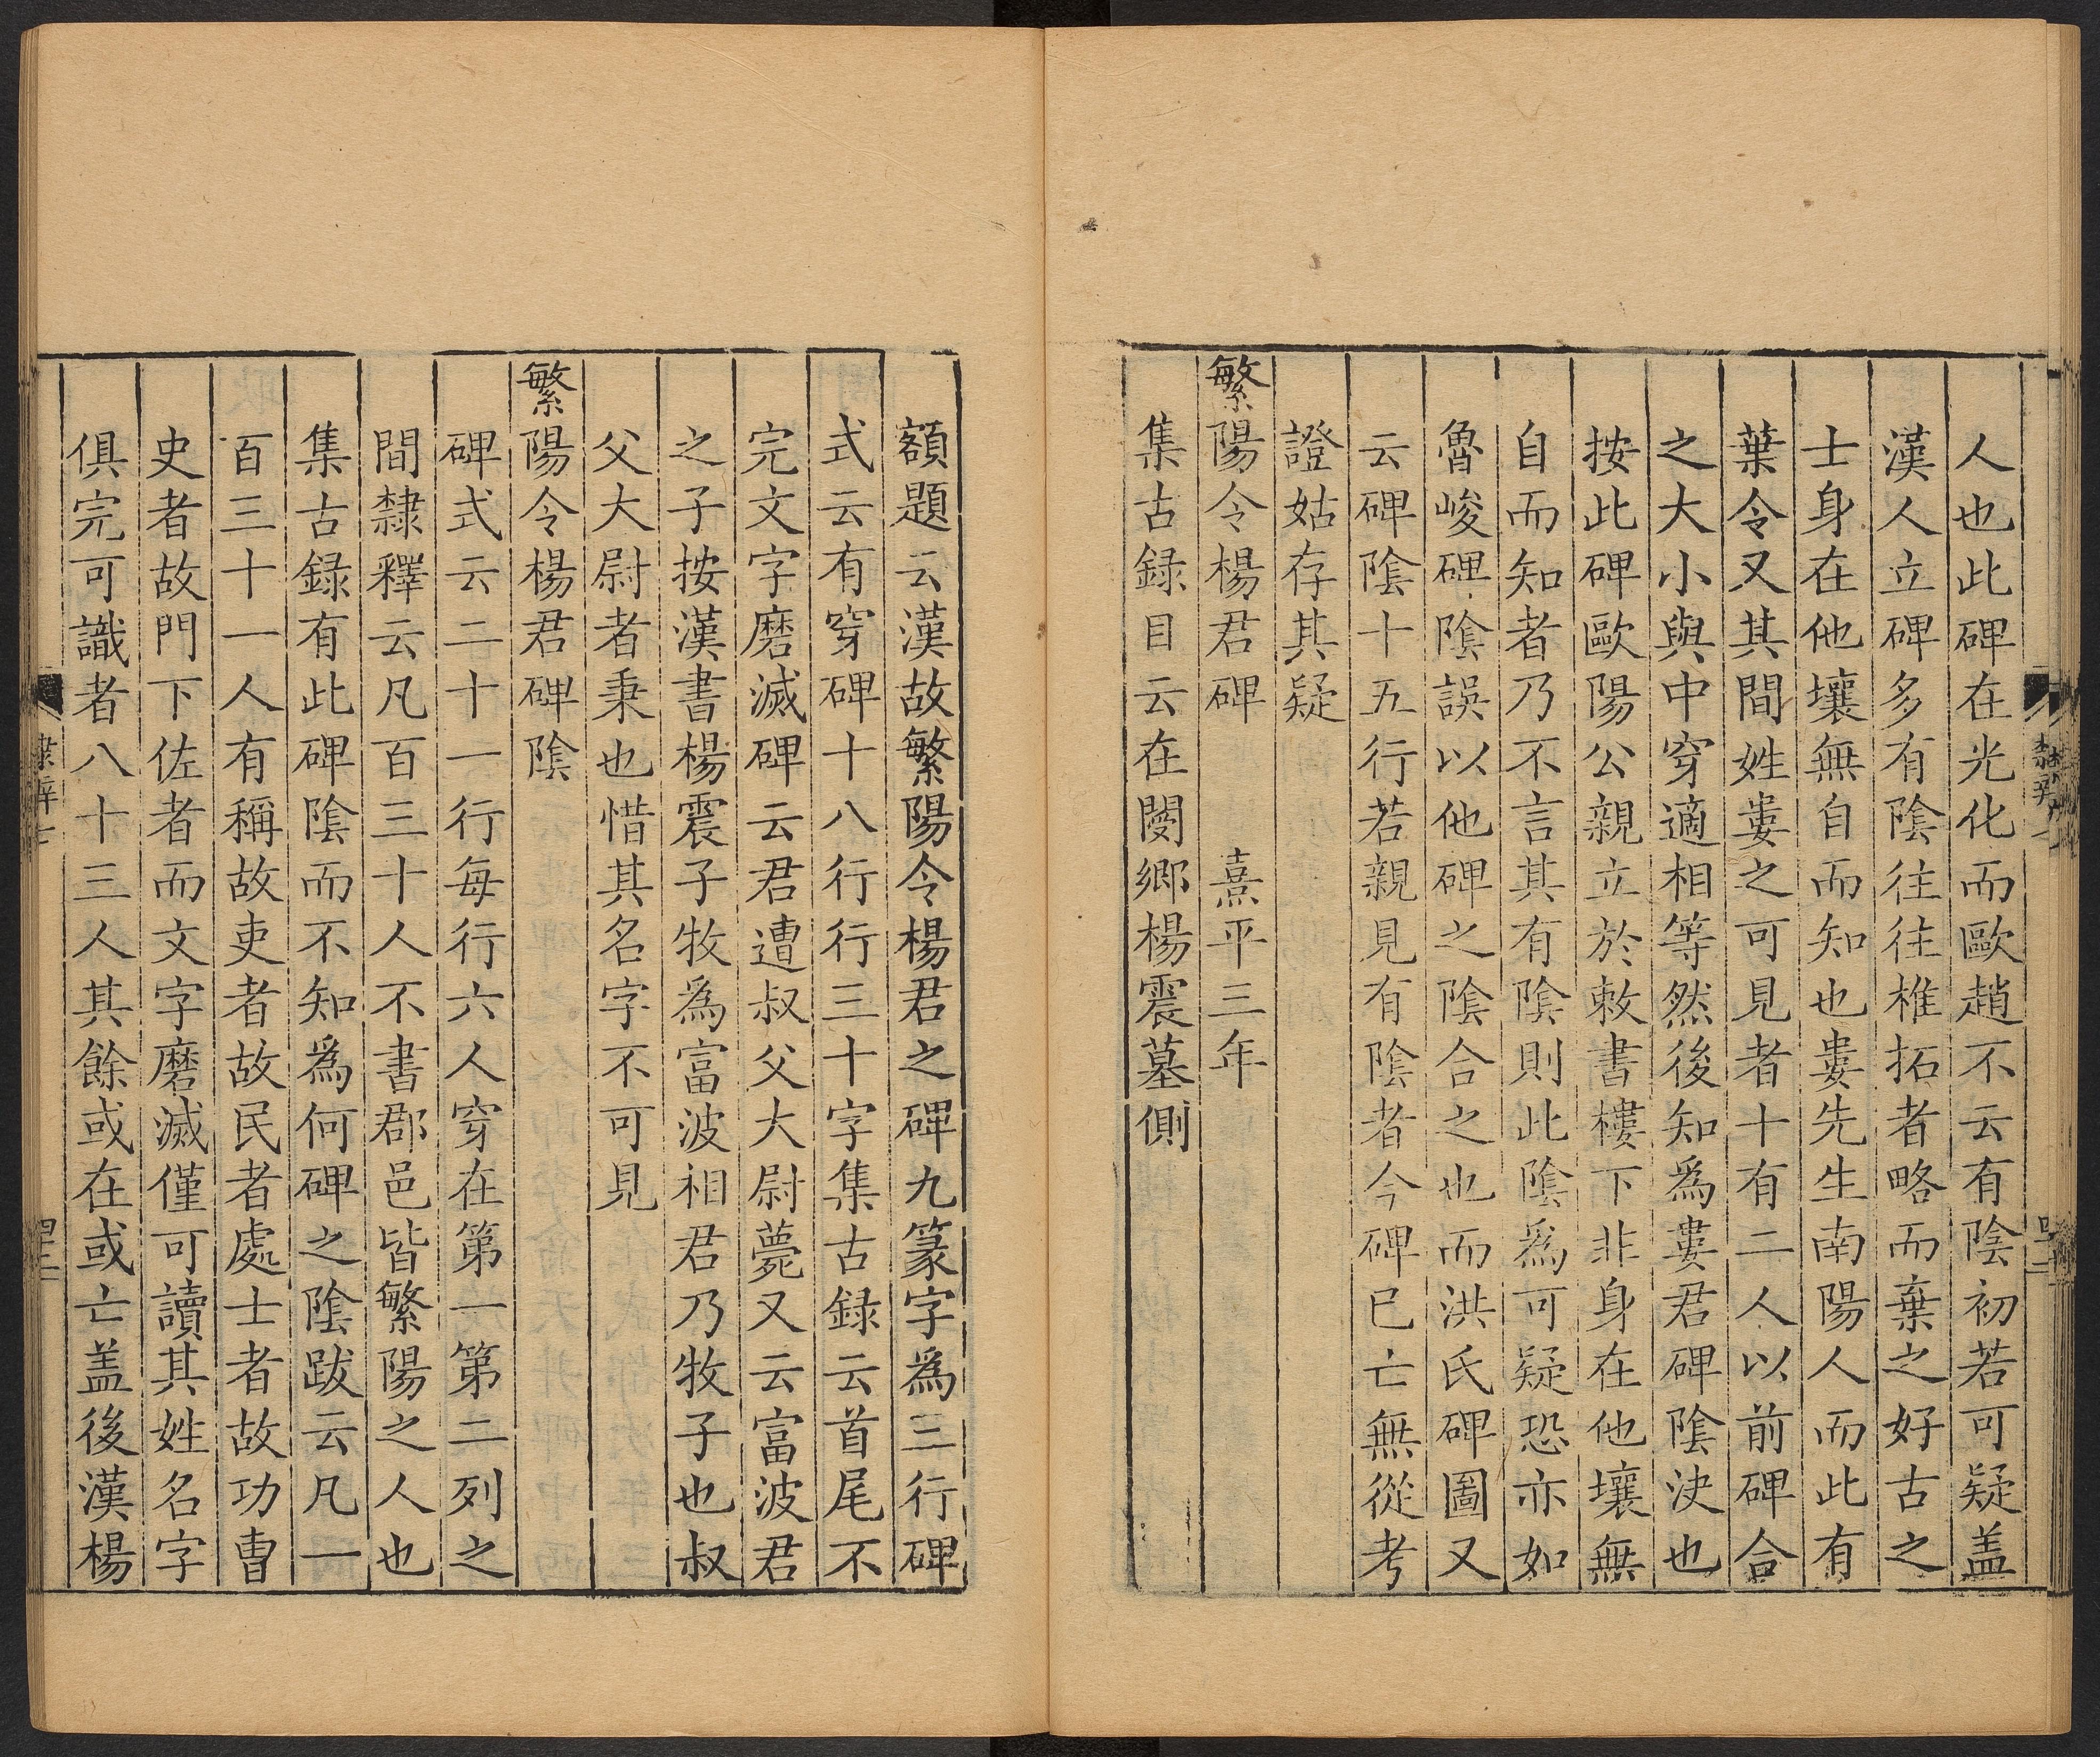 人也此碑在光化而歐趙不云有陰初若可疑盖
漢人立碑多有陰往往椎拓者略而棄之好古之
士身在他壤無自而知也婁先生南陽人而此有
葉令又其間姓婁之可見者十有二人以前碑合
之大小與中穿適相等然後知爲婁君碑陰決也
按此碑歐陽公親立於敕書樓下非身在他壤無
自而知者乃不言其有陰則此陰爲可疑恐亦如
魯峻碑陰誤以他碑之陰合之也而洪氏碑圖又
云碑陰十五行若親見有陰者今碑已亡無從考
證姑存其疑
繁陽令楊君碑 熹平三年
集古録目云在閿鄉楊震墓側
額題云漢故繁陽令楊君之碑九篆字爲三行碑
式云有穿碑十八行行三十字集古録云首尾不
完文字磨滅碑云君遭叔父大尉薨又云富波君
之子按漢書楊震子牧爲富波相君乃牧子也叔
父大尉者秉也惜其名字不可見
繁陽令楊君碑陰
碑式云二十一行每行六人穿在第一第二列之
間隸釋云凡百三十人不書郡邑皆繁陽之人也
集古録有此碑陰而不知爲何碑之陰跋云凡一
百三十一人有稱故吏者故民者處士者故功曹
史者故門下佐者而文字磨滅僅可讀其姓名字
俱完可識者八十三人其餘或在或亡盖後漢楊